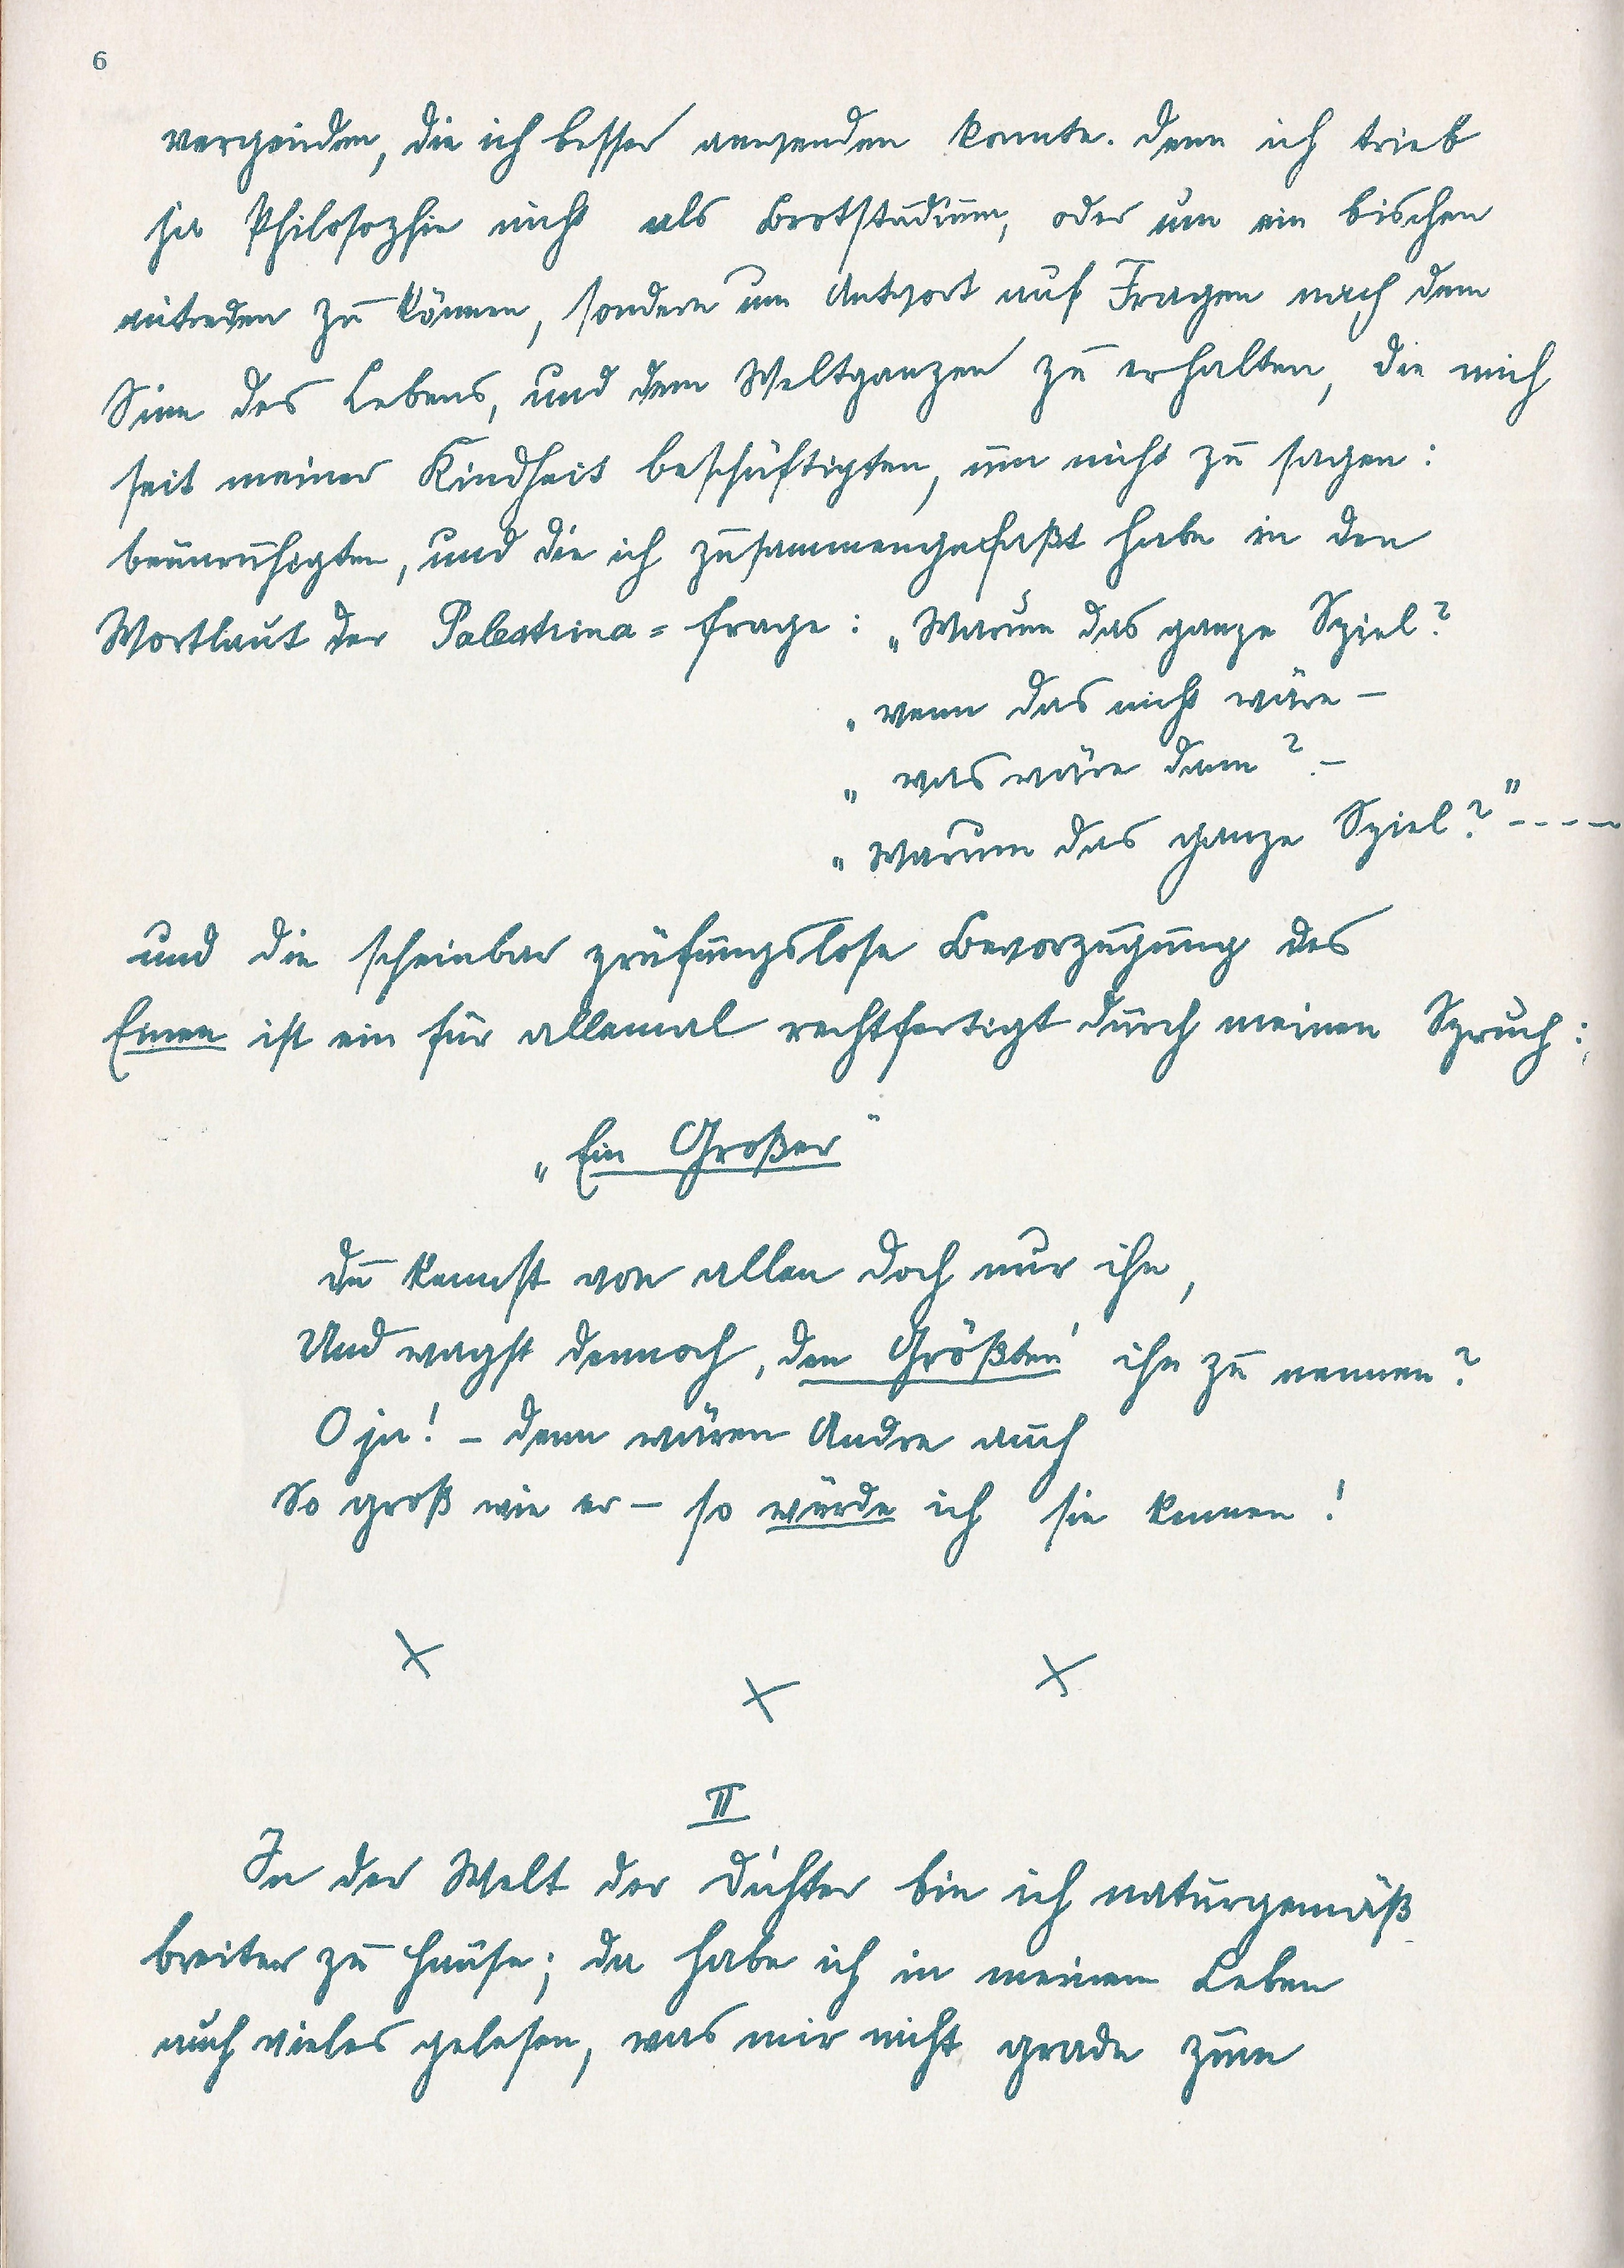 6
vergeuden, die ich besser anwenden konnte. Denn ich trieb
ja Philosophie nicht als Brotstudium, oder um ein bischen
mitreden zu können, sondern um Antwort auf Fragen nach dem
Sinn des Lebens, und dem Weltganzen zu erhalten, die mich
seit meiner Kindheit beschäftigten, um nicht zu sagen:
beunruhigten, und die ich zusammengefaßt habe in den
Wortlaut der Palestrina=Frage: „Warum das ganze Spiel?
„wenn das nicht wäre –
„was wäre dann? –
„Warum das ganze Spiel?" - - - -
und die scheinbar prüfungslose Bevorzugung des
Einen ist ein für allemal rechtfertigt durch meinen Spruch:
„Ein Großer"
Du kennst von allen doch nur ihn,
Und wagst dennoch ‚den Größten' ihn zu nennen?
O ja! – denn wären Andre auch
So groß wie er – so würde ich sie kennen!
x x x
II
In der Welt der Dichter bin ich naturgemäß
breiter zu Hause; da habe ich in meinem Leben
auch vieles gelesen, was mir nicht grade zum